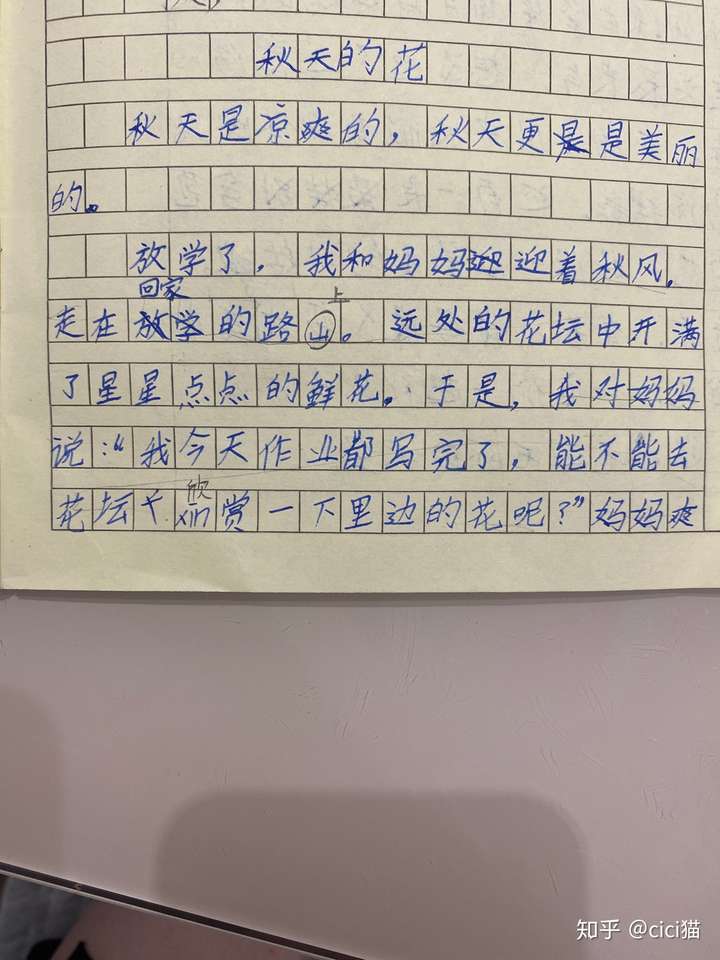 秋天的花
秋天是凉爽的，秋天更是美丽
的。
放学了，我和妈妈迎着秋风，
回家 上
走在放学的路山。远处的花坛中开满
了星星点点的鲜花。于是，我对妈妈
说：“我今天作业都写完了，能不能去
欣
花坛xin赏一下里边的花呢？”妈妈爽
知乎 @cici猫